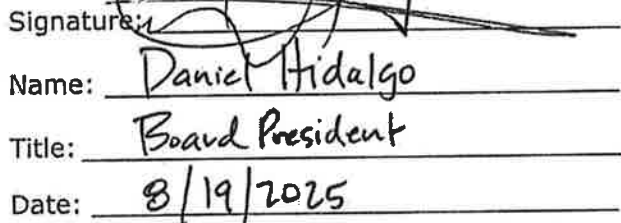 Signature:
Name: Daniel Hidalgo
Title: Board President
Date: 8/19/2025